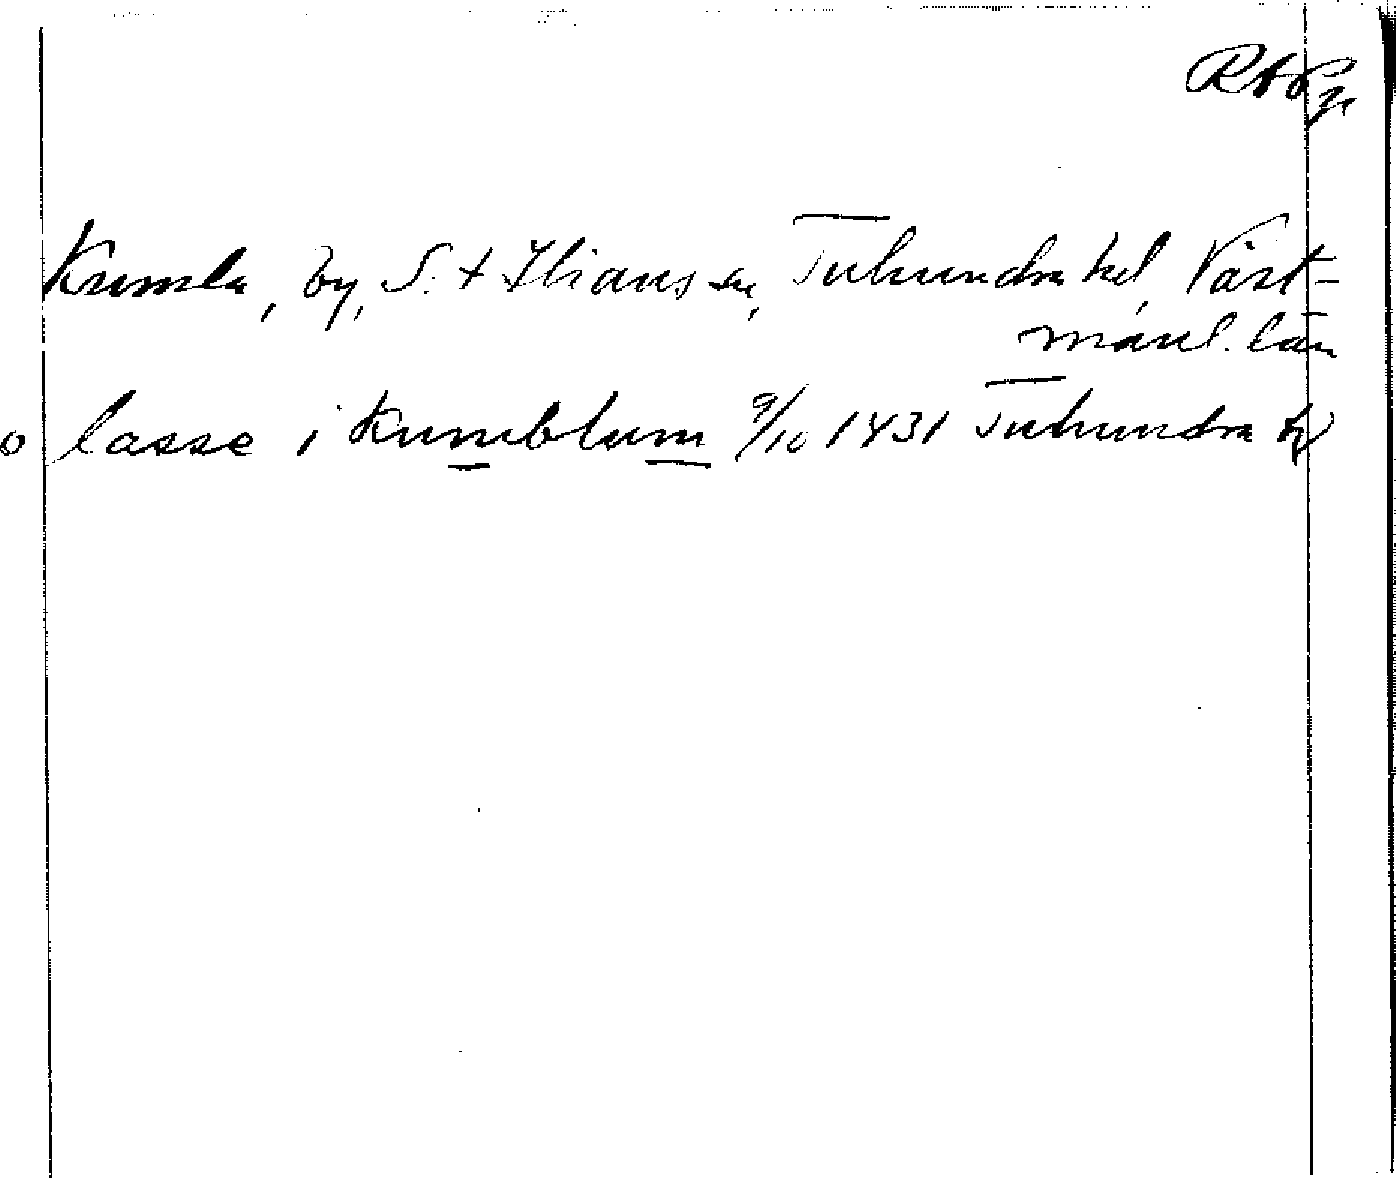 RAPp
Kumla, by, S:t Ilians sn, Tuhundra hd, Väst-
manl. län
o lasse i Kumblum 9/10 1431 Tuhundra h